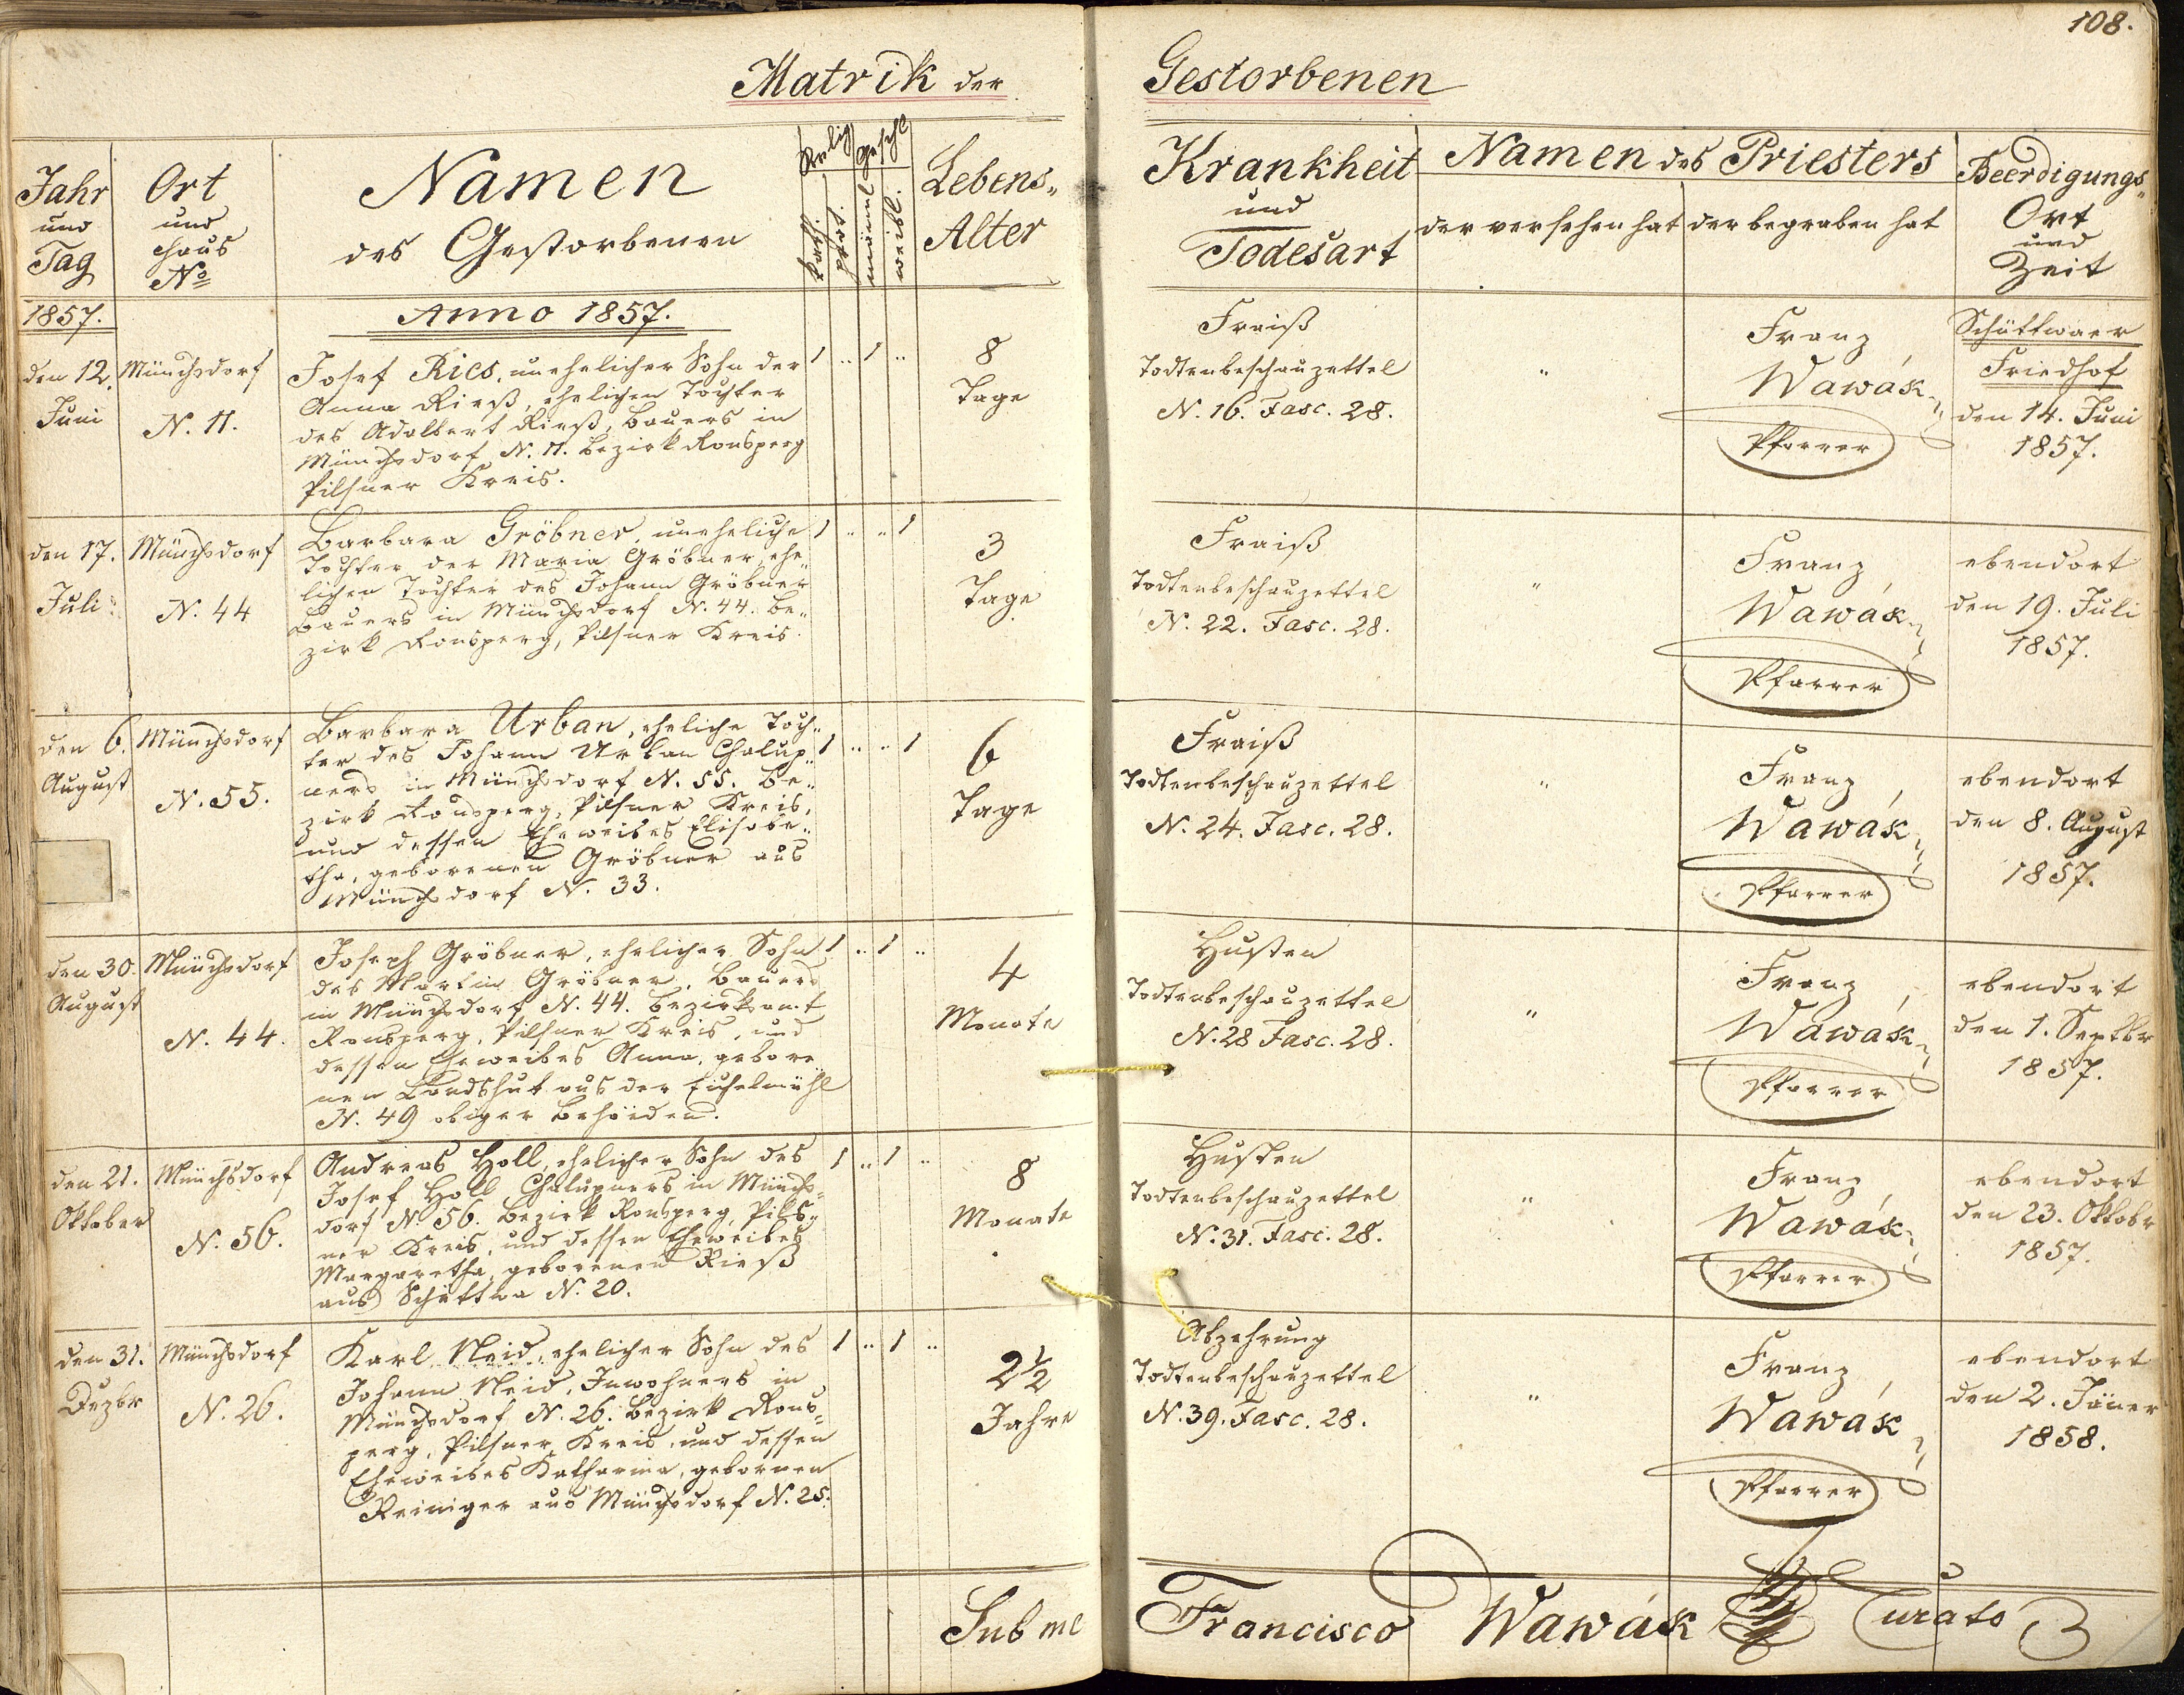 108.
Matrik der Gestorbenen
Jahr und Tag
Ort und Haus No
Namen des Gestorbenen
Relig
kath.
prot.
Geschl
männl
weibl.
Lebens„ Alter
Krankheit und Todesart
Namen des Priesters
der versehen hat
der begraben hat
Beerdigungs„ Ort und Zeit
1857.
Anno 1857.
den 12. Juni
Münchsdorf
N. 11.
Josef Ries, unehelicher Sohn der
Anna Rieß, ehelichen Tochter
des Adalbert Rieß, Bauers in
Münchsdorf N. 11. Bezirk Ronsperg
Pilsner Kreis.
1 .. 1 ..
8
Tage
Fraiß
Todtenbeschauzettel
N. 16. Fasc. 28.
"
Franz
Wawák
Pfarrer
Schüttwaer
Friedhof
den 14. Juni
1857.
den 17. Juli
Münchsdorf
N. 44
Barbara Gröbner, uneheliche
Tochter der Maria Gröbner, ehe„
lichen Tochter des Johann Gröbner
Bauers in Münchsdorf N. 44. Be„
zirk Ronsperg, Pilsner Kreis.
1 .. .. 1
3
Tage
Fraiß
Todtenbeschauzettel
N. 22. Fasc. 28.
"
Franz
Wawák
Pfarrer
ebendort
den 19. Juli
1857.
den 6. August
Münchsdorf
N. 55.
Barbara Urban, eheliche Toch„
ter des Johann Urban Chalup„
ners in Münchsdorf N. 55. Be„
zirk Ronsperg, Pilsner Kreis,
und dessen Eheweibes Elisabe„
tha, geborenen Gröbner aus
Münchsdorf N. 33.
1 .. .. 1
6
Tage
Fraiß
Todtenbeschauzettel
N. 24. Fasc. 28.
"
Franz
Wawák
Pfarrer
ebendort
den 8. August
1857.
den 30. August
Münchsdorf
N. 44.
Joseph Gröbner, ehelicher Sohn
des Martin Gröbner, Bauers
in Münchsdorf N. 44. Bezirksamt
Ronsperg, Pilsner Kreis, und
dessen Eheweibes Anna, gebore„
nen Landshut aus der Eichelmühl
N. 49 obiger Behörden.
1 .. 1 ..
4
Monate
Husten
Todtenbeschauzettel
N. 28 Fasc. 28.
"
Franz
Wawák
Pfarrer
ebendort
den 1. Septbr
1857.
den 21. Oktober
Münchsdorf
N. 56.
Andreas Holl, ehelicher Sohn des
Josef Holl Chalupners in Münchs„
dorf N. 56. Bezirk Ronsperg, Pils„
ner Kreis, und dessen Eheweibes
Margaretha, geborenen Rieß
aus Schüttwa N. 20.
1 .. 1 ..
8
Monate
Husten
Todtenbeschauzettel
N. 31. Fasc. 28.
"
Franz
Wawák
Pfarrer
ebendort
den 23. Oktobr
1857.
den 31. Dezbr
Münchsdorf
N. 26.
Karl Neid, ehelicher Sohn des
Johann Neid, Inwohners in
Münchsdorf N. 26. Bezirk Rons„
perg, Pilsner Kreis, und dessen
Eheweibes Katharina, gebornen
Reiniger aus Münchsdorf N. 25.
1 .. 1 ..
2½
Jahre
Abzehrung
Todtenbeschauzettel
N. 39. Fasc. 28.
"
Franz
Wawák
Pfarrer
ebendort
den 2. Jäner
1858.
Sub me Francisco Wawák Curato